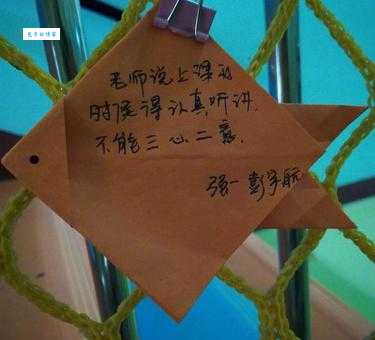 老师说上课的
时候得认真听讲.
不能三心二意.
强一 彭宇航